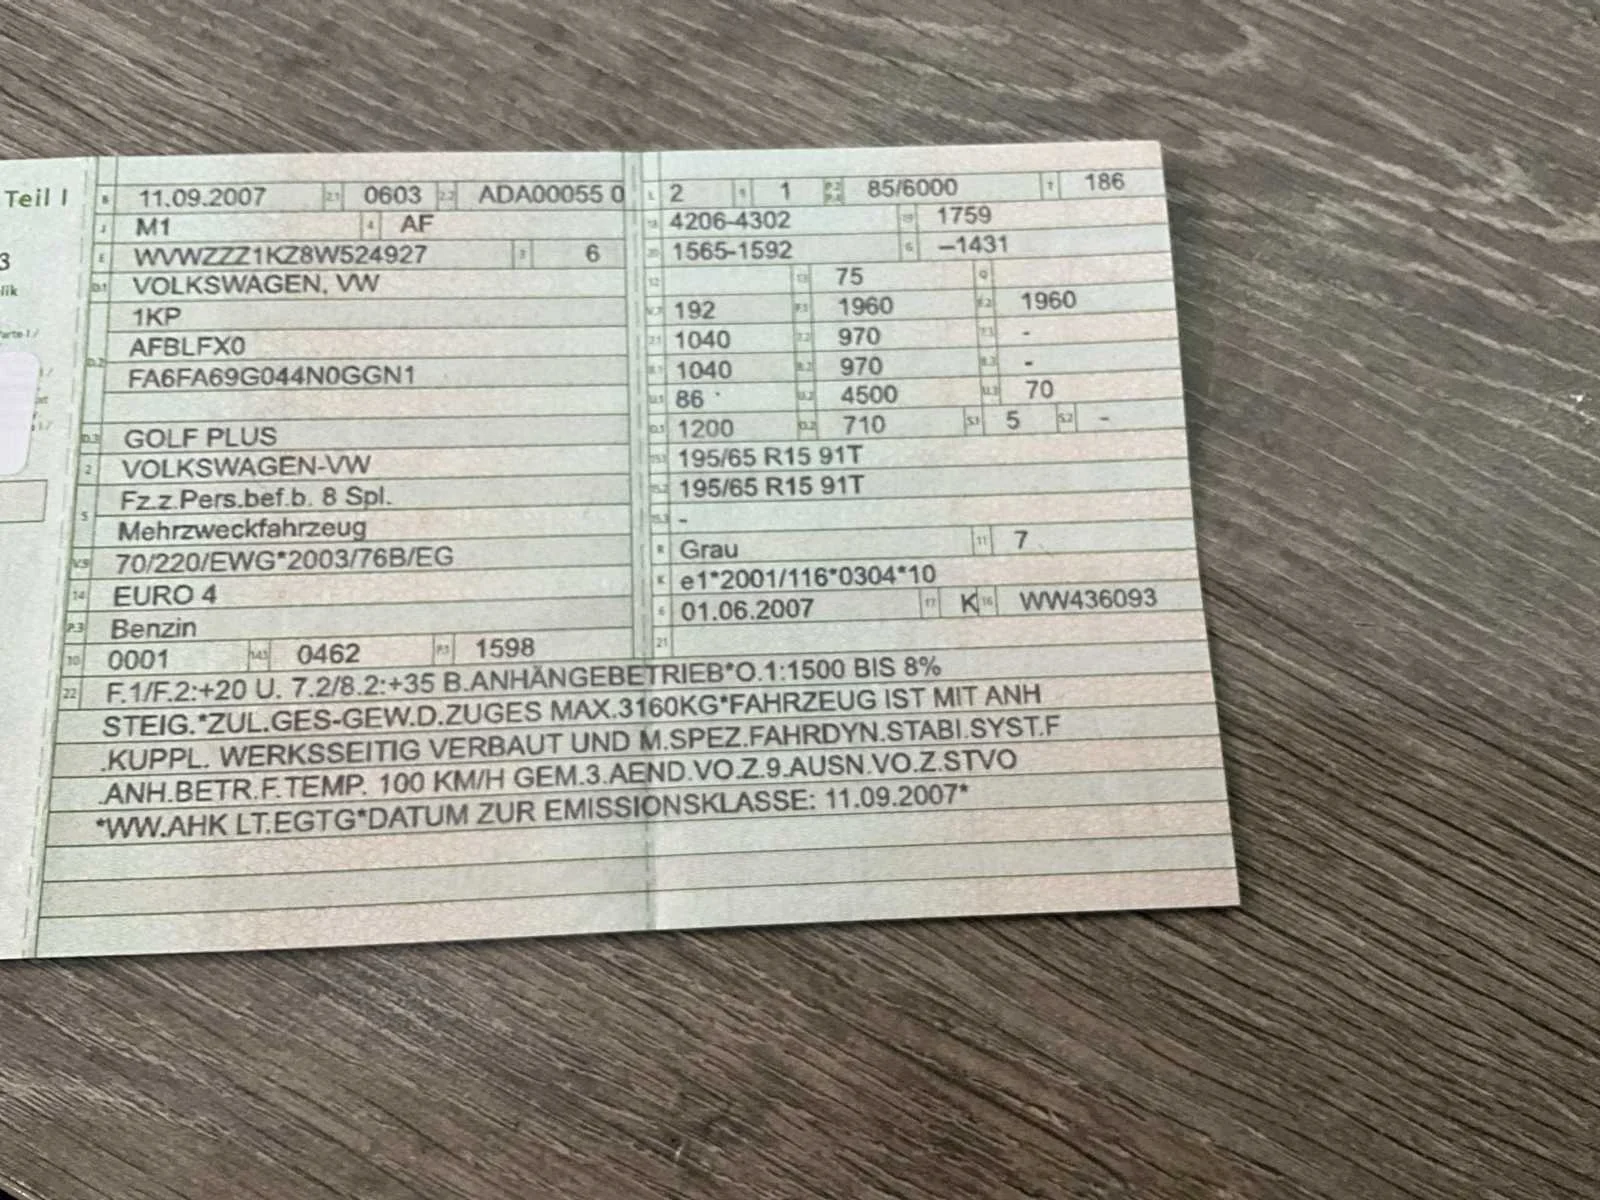 Teil I
3
lik
B 11.09.2007 2.1 0603 2.2 ADA00055 0
J M1 4 AF
E WVWZZZ1KZ8W524927 3 6
D.1 VOLKSWAGEN, VW
1KP
D.2 AFBLFX0
FA6FA69G044N0GGN1
D.3 GOLF PLUS
2 VOLKSWAGEN-VW
5 Fz.z.Pers.bef.b. 8 Spl.
Mehrzweckfahrzeug
V.9 70/220/EWG*2003/76B/EG
14 EURO 4
P.3 Benzin
10 0001 14.1 0462 P.1 1598
L 2 9 1 P.2 P.4 85/6000 T 186
18 4206-4302 19 1759
20 1565-1592 G –1431
12 13 75 Q
V.7 192 F.1 1960 F.2 1960
7.1 1040 7.2 970 7.3 -
8.1 1040 8.2 970 8.3 -
U.1 86 U.2 4500 U.3 70
O.1 1200 O.2 710 S.1 5 S.2 -
15.1 195/65 R15 91T
15.2 195/65 R15 91T
15.3 -
R Grau 11 7
K e1*2001/116*0304*10
6 01.06.2007 17 K 16 WW436093
21
22 F.1/F.2:+20 U. 7.2/8.2:+35 B.ANHÄNGEBETRIEB*O.1:1500 BIS 8%
STEIG.*ZUL.GES-GEW.D.ZUGES MAX.3160KG*FAHRZEUG IST MIT ANH
.KUPPL. WERKSSEITIG VERBAUT UND M.SPEZ.FAHRDYN.STABI.SYST.F
.ANH.BETR.F.TEMP. 100 KM/H GEM.3.AEND.VO.Z.9.AUSN.VO.Z.STVO
*WW.AHK LT.EGTG*DATUM ZUR EMISSIONSKLASSE: 11.09.2007*